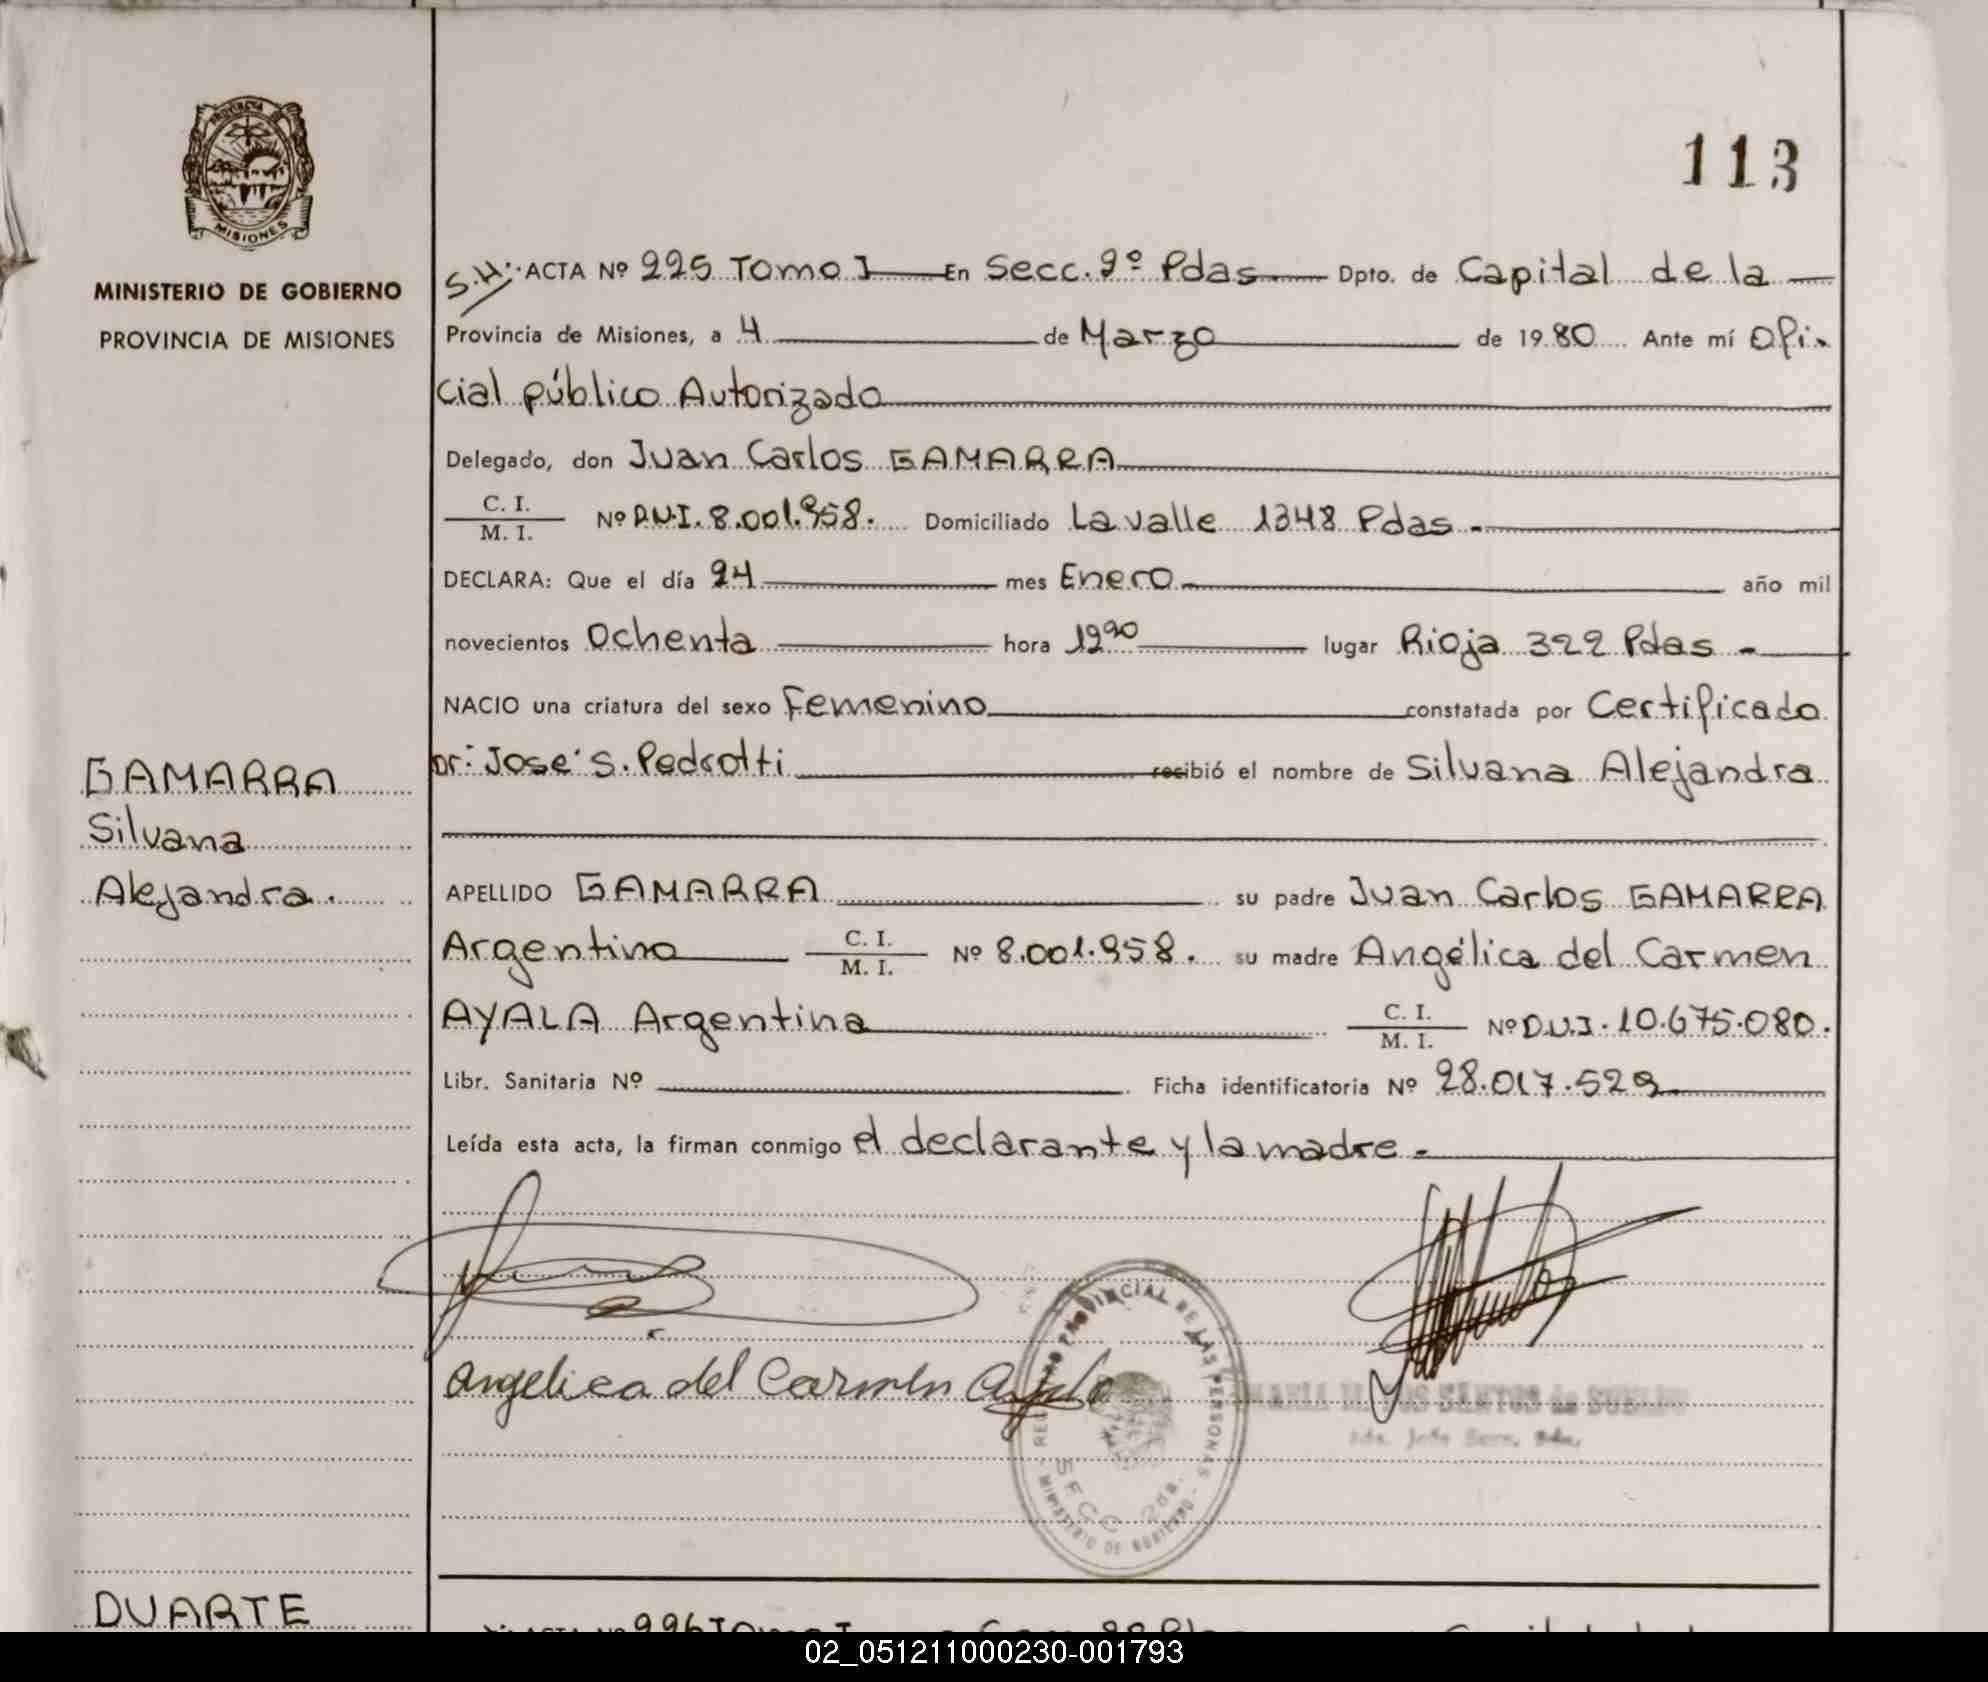 113
PROVINCIA DE
MISIONES
MINISTERIO DE GOBIERNO
PROVINCIA DE MISIONES
S.H: ACTA Nº 225 Tomo I En Secc. 2º Pdas. Dpto. de Capital de la
Provincia de Misiones, a 4 de Marzo de 1980 Ante mí Ofi-
cial público Autorizado
Delegado, don Juan Carlos GAMARRA
C. I.
M. I. Nº D.N.I. 8.001.958. Domiciliado Lavalle 1348 Pdas.
DECLARA: Que el día 24 mes Enero año mil
novecientos Ochenta hora 12 lugar Rioja 322 Pdas -
NACIO una criatura del sexo Femenino constatada por Certificado
Dr: José S. Pedrotti recibió el nombre de Silvana Alejandra
GAMARRA
Silvana
Alejandra.
APELLIDO GAMARRA su padre Juan Carlos GAMARRA
Argentino C. I.
M. I. Nº 8.001.958. su madre Angélica del Carmen
AYALA Argentina C. I.
M. I. Nº D.N.I. 10.675.080.
Libr. Sanitaria Nº Ficha identificatoria Nº 28.017.529
Leída esta acta, la firman conmigo el declarante y la madre.
Angelica del Carmen Ayala
PROVINCIAL DE LAS PERSONAS
SECC 2da.
MINISTERIO DE GOBIERNO
DUARTE
ACTA Nº 226 Tomo I
02_051211000230-001793